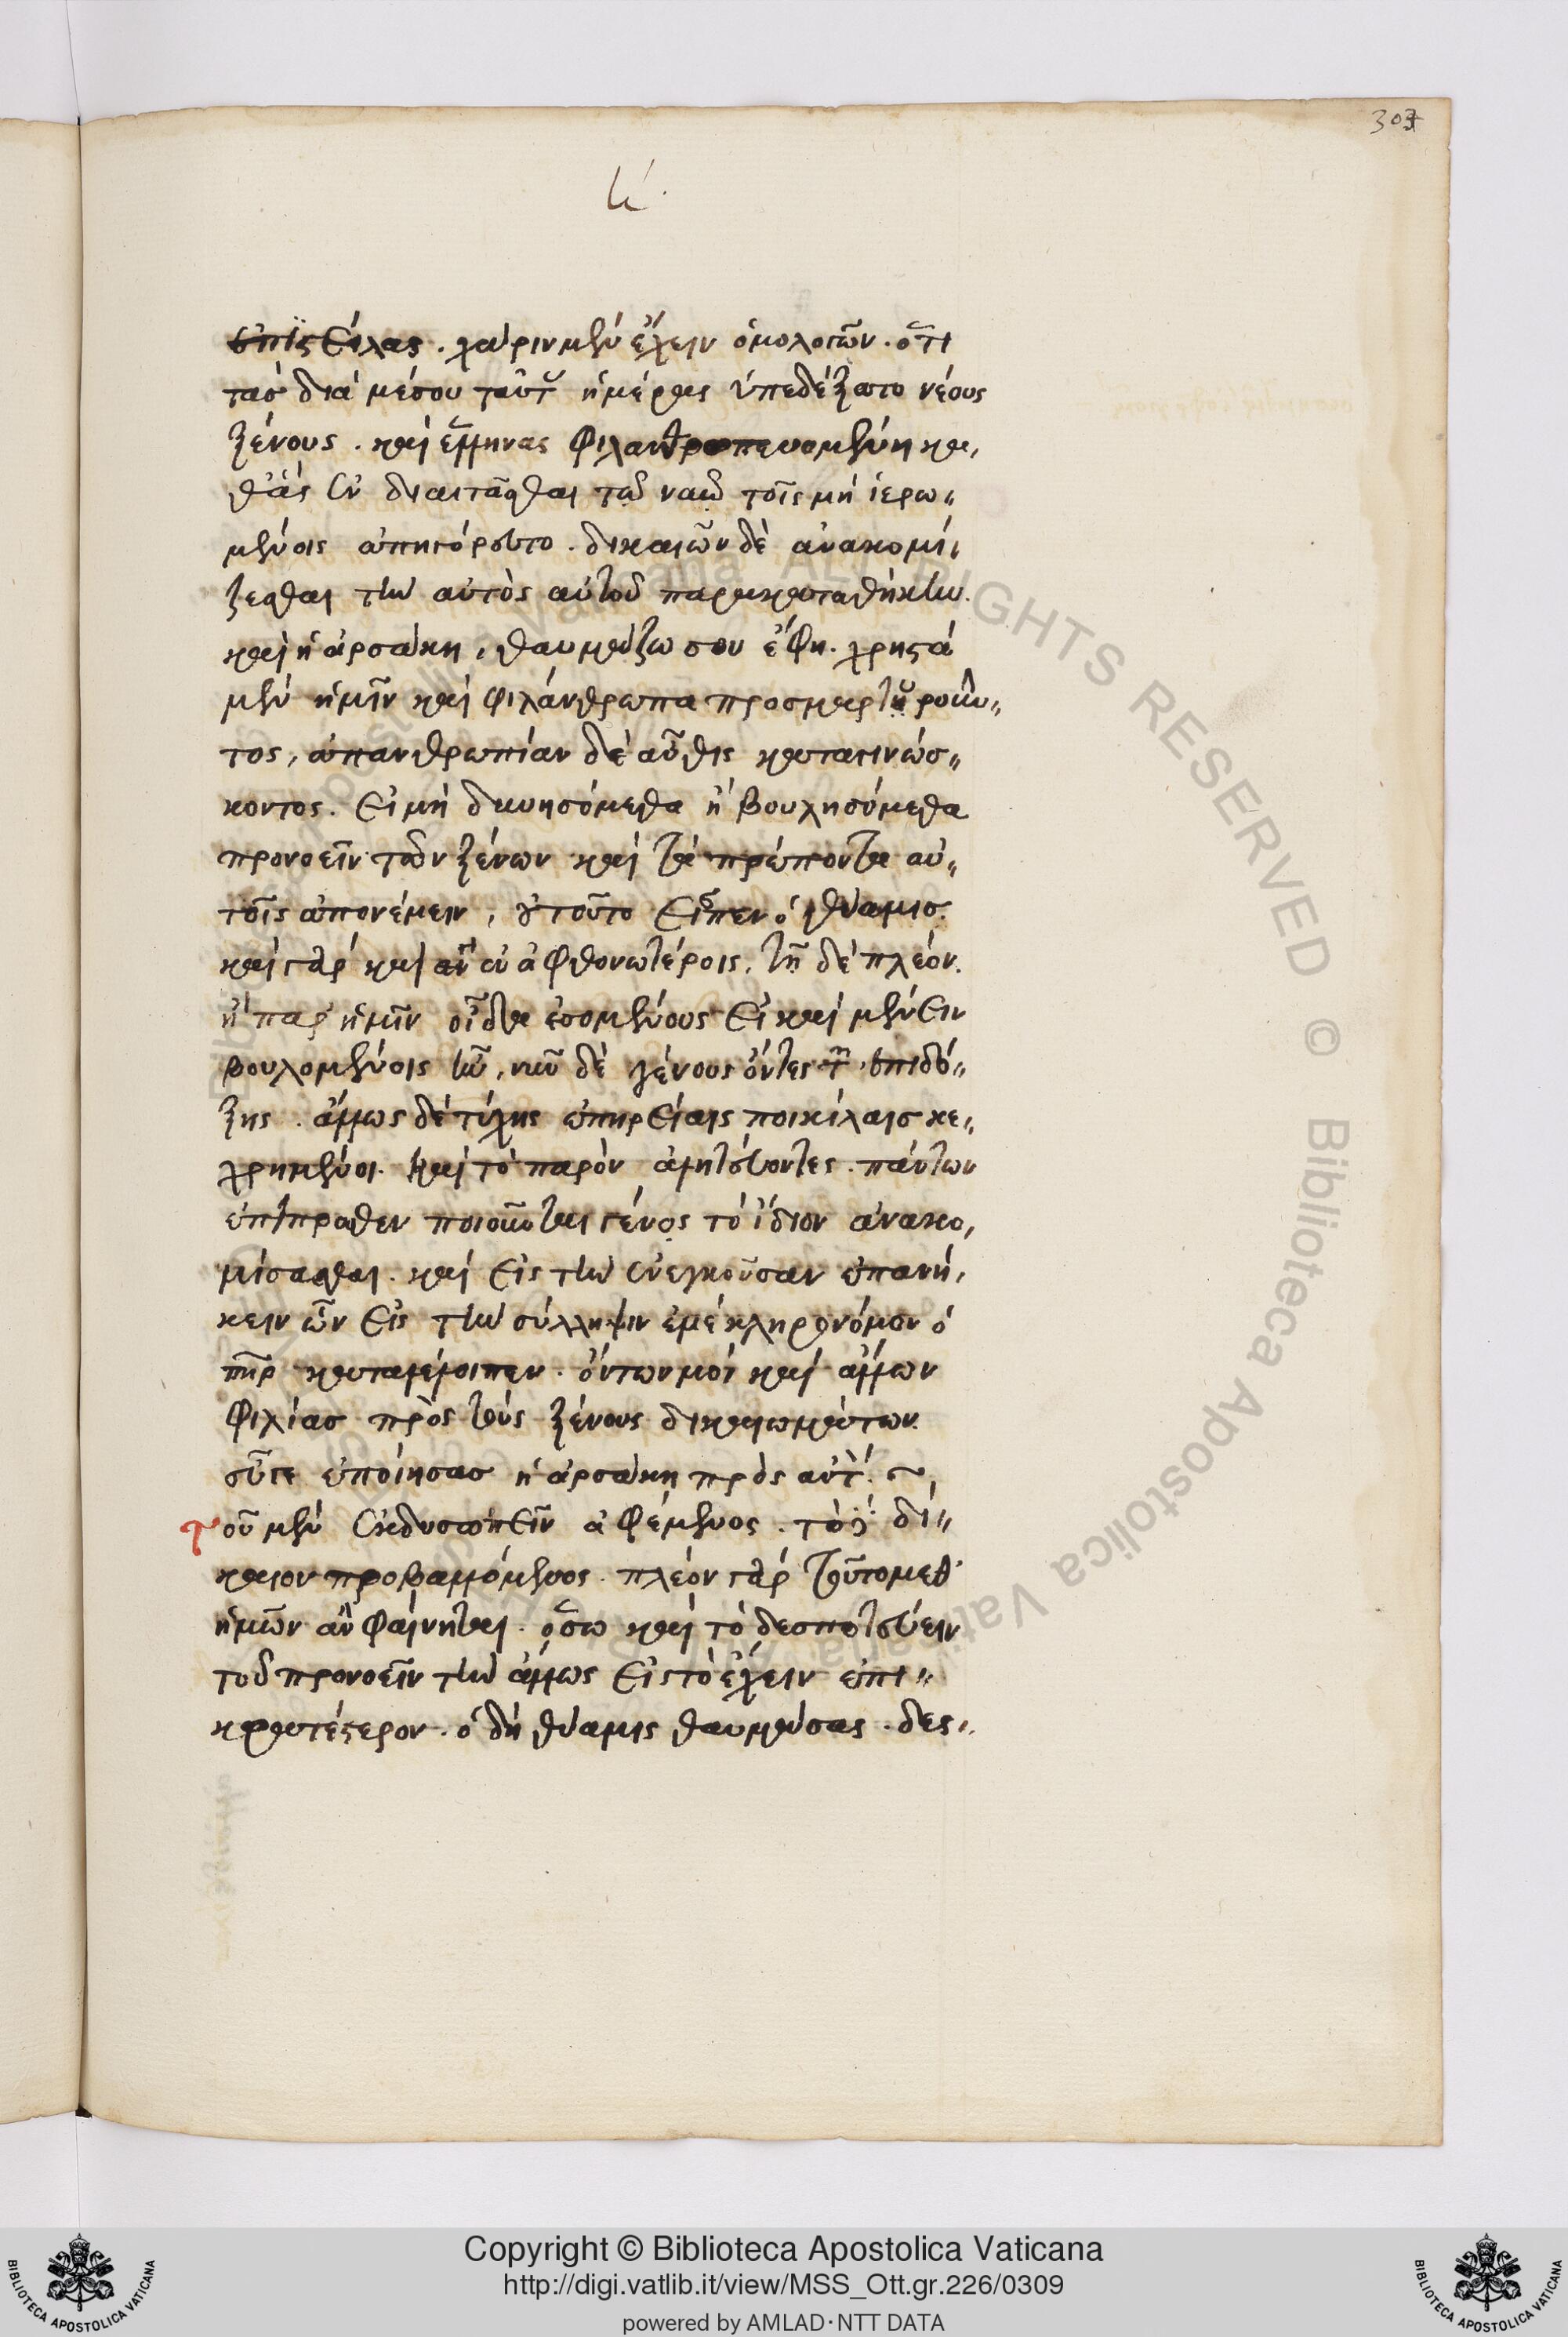 303
κ΄.
ἐπιστείλας. χάριν μὲν ἔχειν ὁμολογῶν. ὅτι
τὰς διὰ μέσου ταύτας ἡμέρας ὑπεδέξατο νέους
ξένους. καὶ ἕλληνας φιλανθρωπευομένη κα,
θ' ἃς ἐν διαιτᾶσθαι τῷ ναῷ τοῖς μὴ ἱερω,,
μένοις ἀπηγόρευτο. δικαιῶν δὲ ἀνακομί,
ζεσθαι τὴν αὐτὸς αὑτοῦ παρακαταθήκην.
καὶ ἡ ἀρσάκη, θαυμάζω σου ἔφη. χρηστὰ
μὲν ἡμῖν καὶ φιλάνθρωπα προσμαρτυροῦν,,
τος, ἀπανθρωπίαν δὲ αὖθις καταγινώσ,,
κοντος. εἰ μὴ δυνησόμεθα ἢ βουλησόμεθα
προνοεῖν τῶν ξένων καὶ τὰ πρέποντα αὐ,,
τοῖς ἀπονέμειν, οὐ τοῦτο εἶπεν ὁ θύαμις.
καὶ γὰρ καὶ ἂν ἐν ἀφθονωτέροις, τῇ δὲ πλέον.
ἢ παρ' ἡμῖν οἶδα ἐσομένους εἰ καὶ μένειν
βουλομένοις ἦν, νῦν δὲ γένους ὄντες τῶν ἐπιδό,,
ξης. ἄλλως δὲ τύχης ἐπηρείαις ποικίλαις κε,,
χρημένοι. καὶ τὸ παρὸν ἀλητεύοντες. πάντων
ἐπίπροσθεν ποιοῦνται γένος τὸ ἴδιον ἀνακο,
μίσασθαι. καὶ εἰς τὴν ἐνεγκοῦσαν ἐπανή,
κειν ὧν εἰς τὴν σύλληψιν ἐμὲ κληρονόμον ὁ
πὴρ καταλέλοιπεν. ὄντων μοὶ καὶ ἄλλων
φιλίας πρὸς τοὺς ξένους δικαιωμάτων.
εὖγε ἐποίησας ἡ ἀρσάκη πρὸς αὐτόν.
τοῦ μὲν ἐκδυσωπεῖν ἀφέμενος. τὸ δὲ δί,,
καιον προβαλλόμενος. πλέον γὰρ τοῦτο μεθ'
ἡμῶν ἂν φαίνηται. ὅσω καὶ τὸ δεσποτεύειν
τοῦ προνοεῖν τὴν ἄλλως εἰς τὸ ἔχειν ἐπι,,
κρατέστερον. ὁ δὴ θύαμις θαυμάσας. δες,,
DIGITAL RIGHTS RESERVED © Biblioteca Apostolica Vaticana
Copyright © Biblioteca Apostolica Vaticana
http://digi.vatlib.it/view/MSS_Ott.gr.226/0309
powered by AMLAD·NTT DATA
BIBLIOTECA APOSTOLICA VATICANA
BIBLIOTECA APOSTOLICA VATICANA